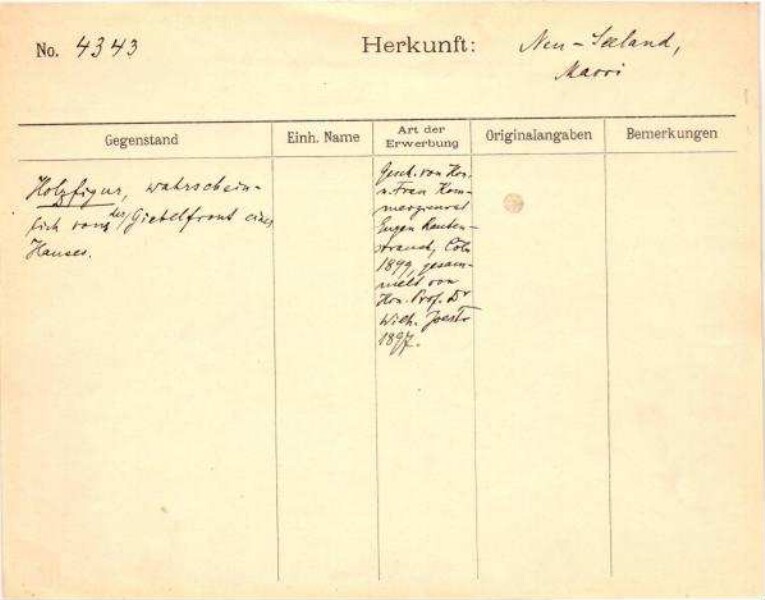 No. 4343
Herkunft: Neu-Seeland,
Maori
Gegenstand
Einh. Name
Art der
Erwerbung
Originalangaben
Bemerkungen
Holzfigur, wahrschein-
lich von der Giebelfront eines
Hauses.
Gesch. von Hon.
u. Frau Kom-
merzienrat
Eugen Rauten-
strauch, Cöln
1899, gesam-
melt von
Hon. Prof. Dr
Wilh. Joest
1897.